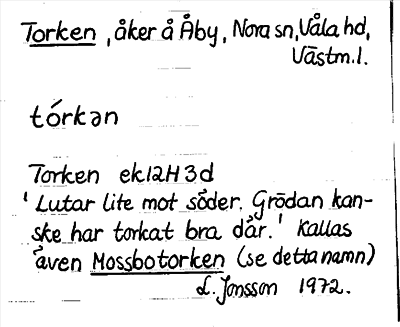 Torken, åker å Åby, Nora sn, Våla hd,
Västm.l.
tórkən
Torken ek12H3d
'Lutar lite mot söder. Grödan kan-
ske har torkat bra där.' Kallas
även Mossbotorken (se detta namn)
L. Jonsson 1972.